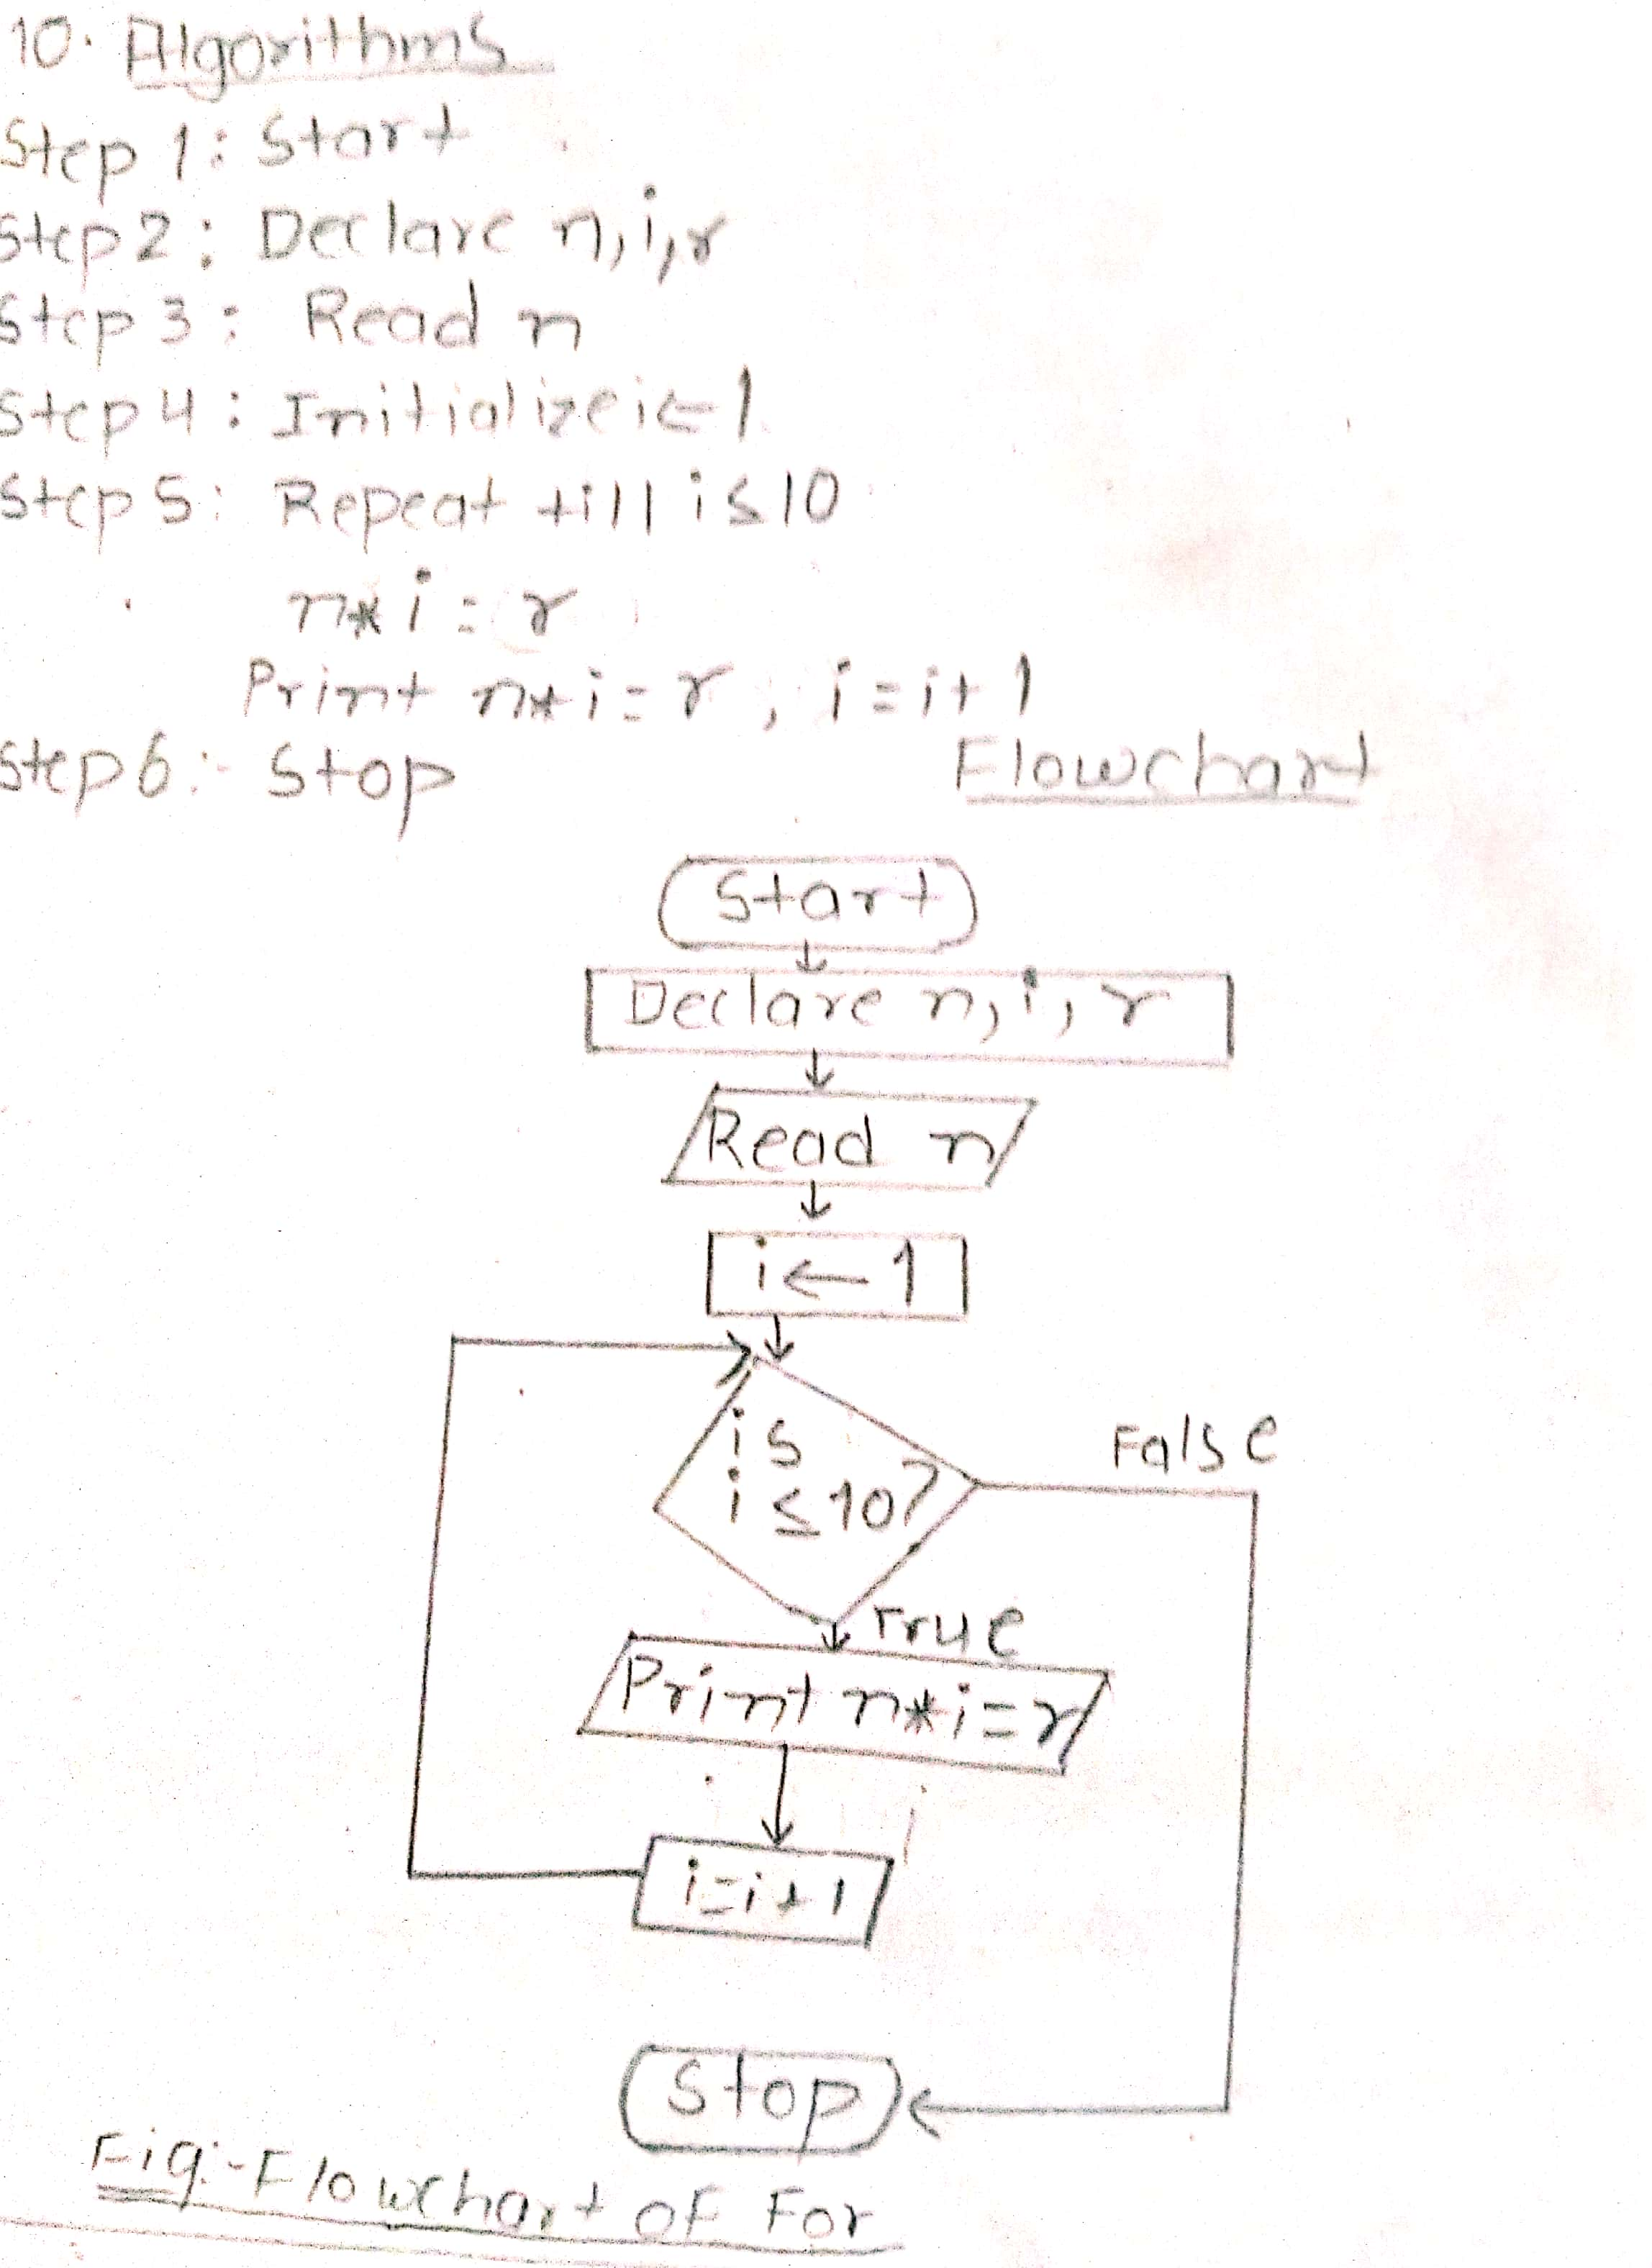 10. Algorithms
Step 1: Start
Step 2: Declare n, i, r
Step 3: Read n
Step 4: Initialize i ← 1
Step 5: Repeat till i ≤ 10
n * i = r
Print n * i = r, i = i + 1
Step 6:- Stop
Flowchart
Start
Declare n, i, r
Read n
i ← 1
is
i ≤ 10?
False
True
Print n * i = r
i = i + 1
Stop
Fig:- Flowchart of For